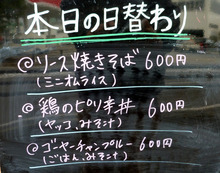 本日の日替わり
@リース焼きそば 600円
(ミニオムライス)
@鶏のピリ辛丼 600円
(ヤッコ、みそ汁)
@ゴーヤーチャンプルー 600円
(ごはん、みそ汁)